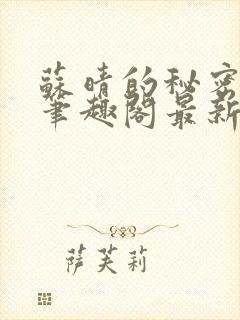 蘇晴的秘密
筆趣閣最新
萨芙莉